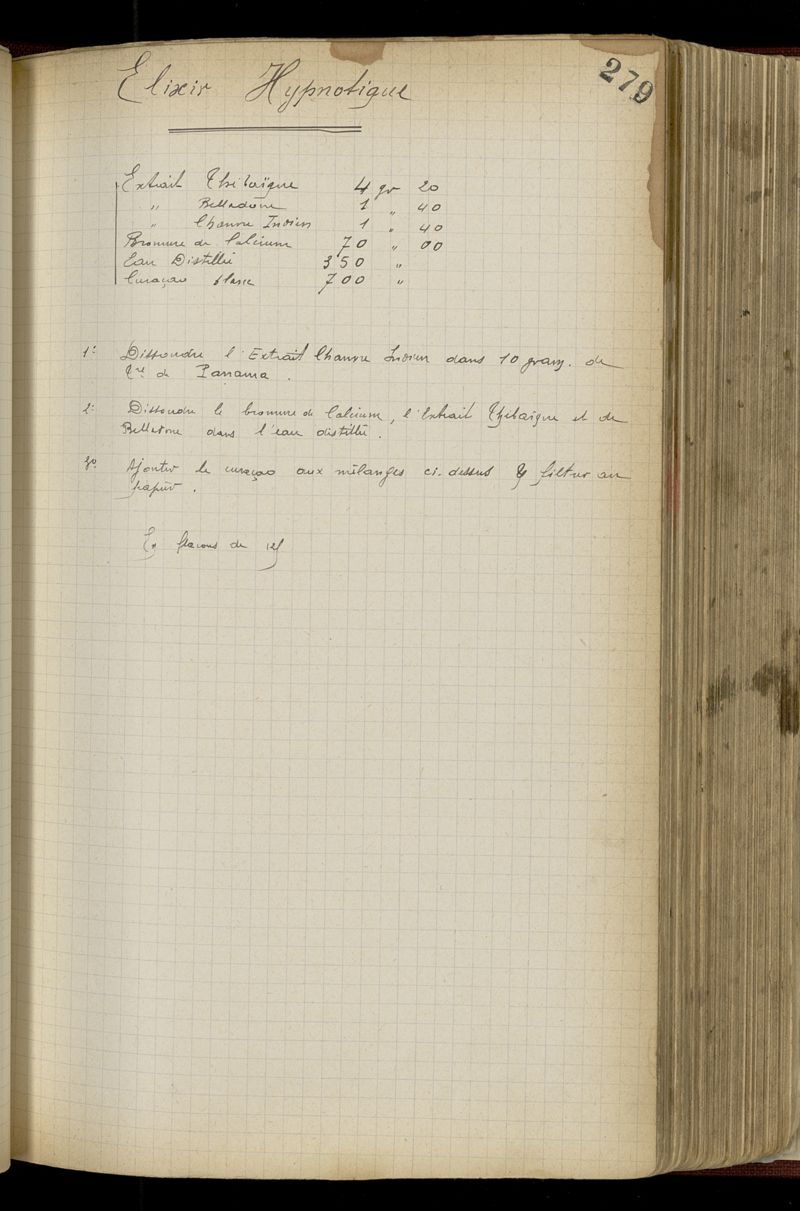 279
Elixir Hypnotique
Extrait Thébaïque 4 gr 20
" Belladone 1 " 40
" Chanvre Indien 1 " 40
Bromure de Calcium 70 " 00
Eau Distillée 350 "
Curaçao blanc 700 "
1º Dissoudre l'Extrait Chanvre Indien dans 10 gram. de
Tre de Panama.
2º Dissoudre le bromure de Calcium, l'Extrait Thébaïque et de
Belladone dans l'eau distillée.
3º Ajouter le curaçao aux mélanges ci-dessus & filtrer au
papier.
En flacons de